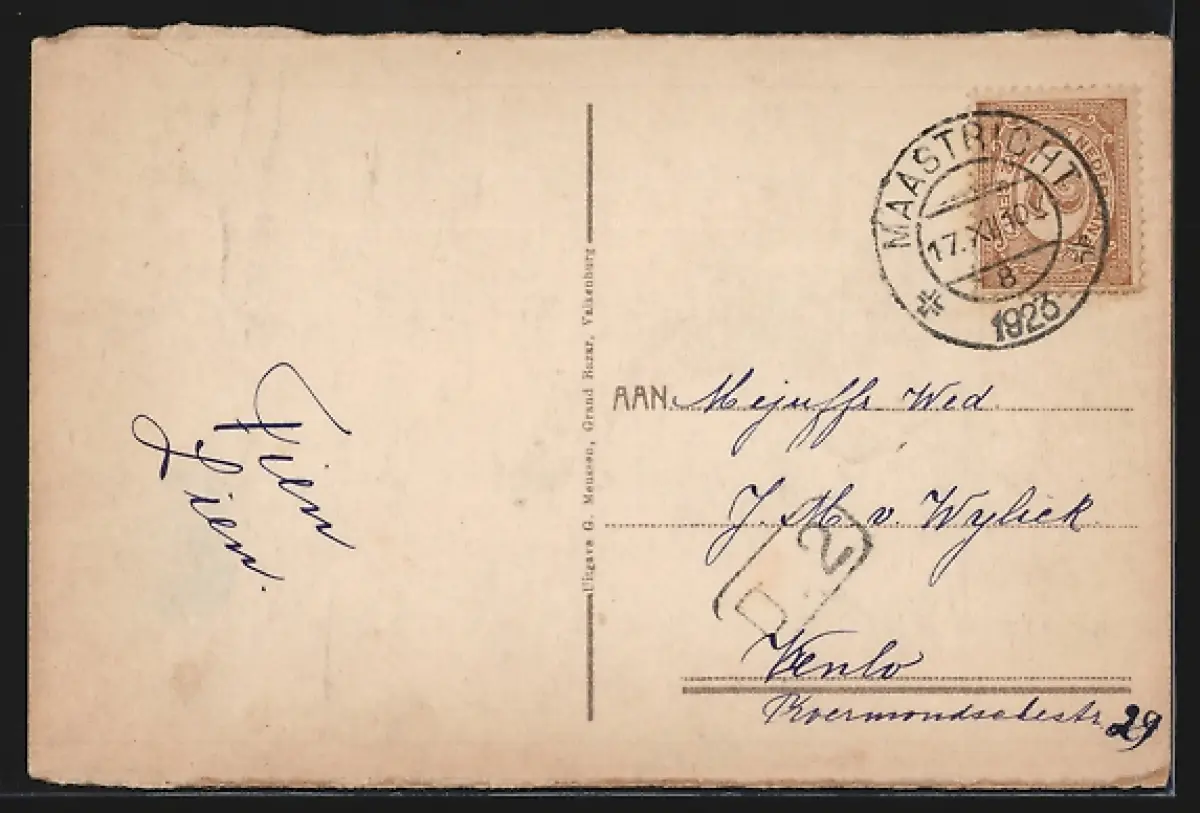 Fien
Lien.
Uitgave G. Meussen, Grand Bazar, Valkenburg
MAASTRICHT
17.XII 10V
8
1923
NEDERLAND
AAN Mejuffr Wed.
J. M. v. Wyliek.
2
D
Venlo
Roermondschestr. 29